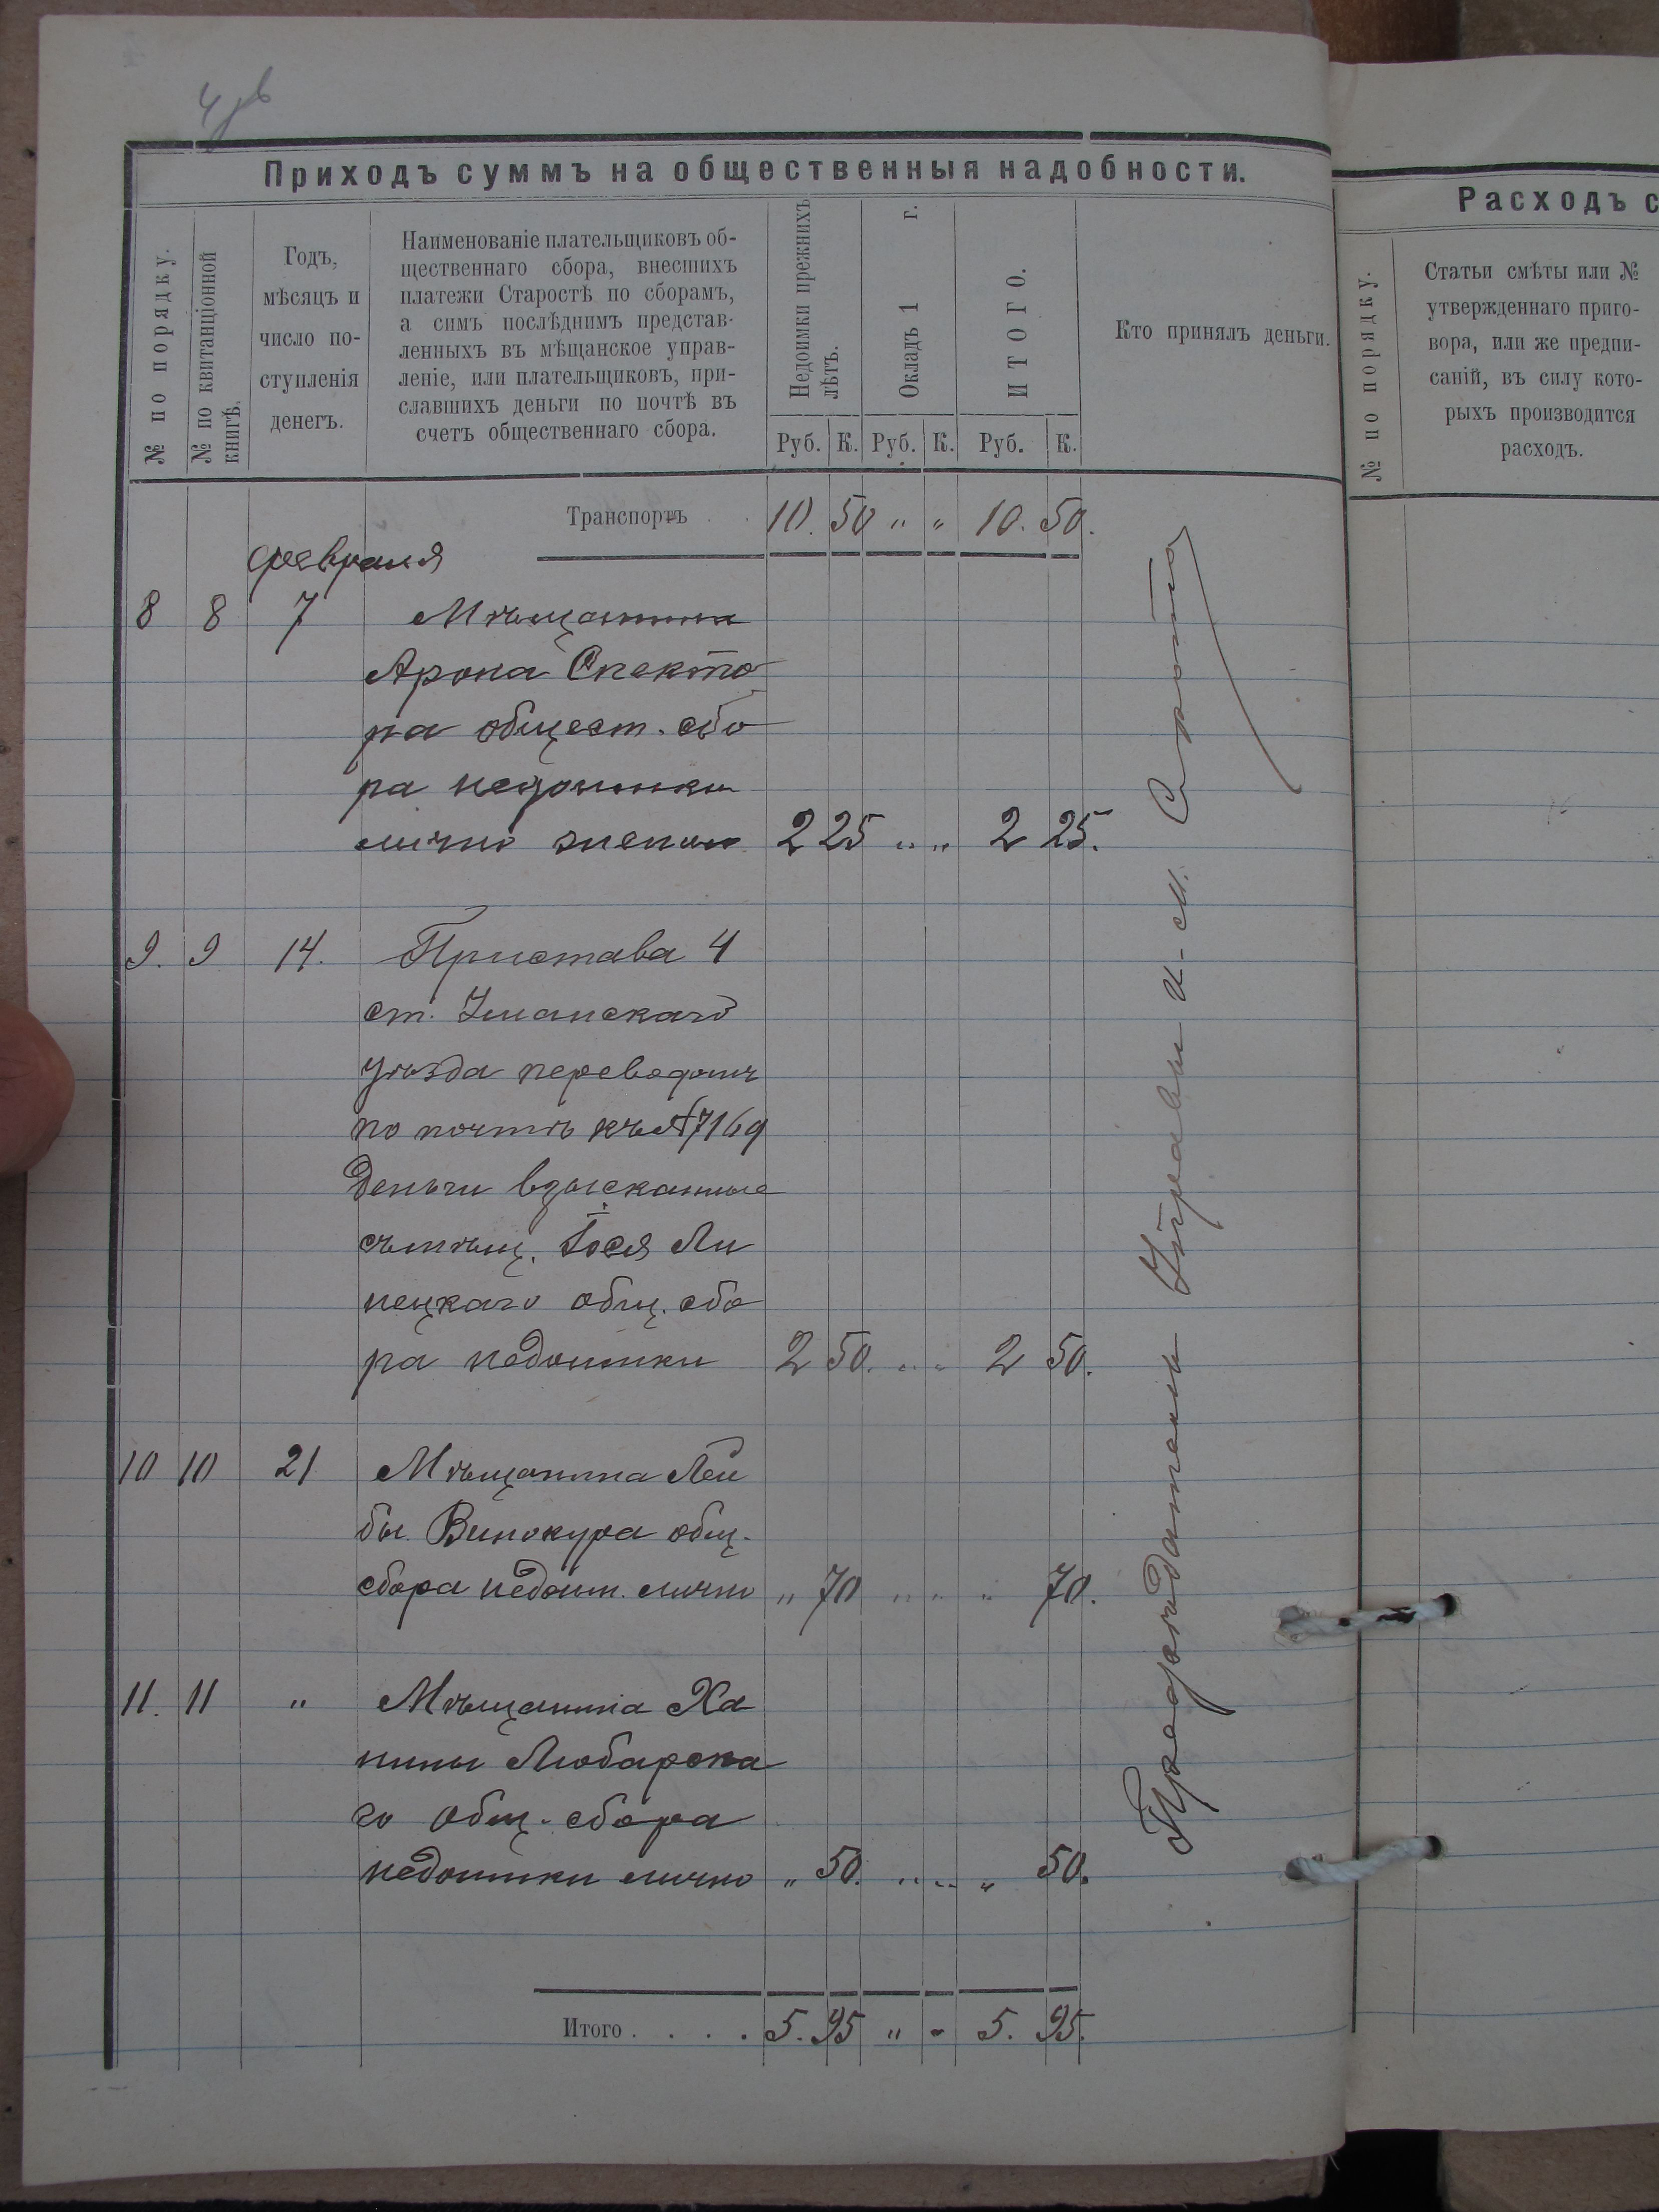 Приходъ суммъ на общественныя надобности.
№ по порядку.
№ по квитанціонной книгѣ.
Годъ,
мѣсяцъ и
число по-
ступленія
денегъ.
Наименованіе плательщиковъ об-
щественнаго сбора, внесшихъ
платежи Старостѣ по сборамъ,
а симъ послѣднимъ представ-
ленныхъ въ мѣщанское управ-
леніе, или плательщиковъ, при-
славшихъ деньги по почтѣ въ
счетъ общественнаго сбора.
Недоимки прежнихъ лѣтъ.
Окладъ 1 г.
ИТОГО.
Руб. К. Руб. К. Руб. К.
Кто принялъ деньги.
Транспортъ . . 10. 50 " " 10. 50.
февраля
8 8 7 Мѣщанина
Арона Спекто
ра общест. сбо
ра недоимки
лично 2 25 " " 2 25.
9. 9 14. Пристава 4
ст. Уманскаго
уѣзда переводомъ
по почтѣ къ № 7169
деньги взысканные
съ мѣщ. Іося Ли
пецкаго общ. сбо
ра недоимки 2 50. " " 2 50.
10 10 21 Мѣщанина Лей
бы Винокура общ.
сбора недоим. лично " 70 " " " 70.
11. 11 " Мѣщанина Ха
нины Любарска
го общ. сбора
недоимки лично " 50. " " " 50.
Итого . . . . 5. 95 " " 5. 95.
Управы
Расходъ с
№ по порядку.
Статьи смѣты или №
утвержденнаго приго-
вора, или же предпи-
саній, въ силу кото-
рыхъ производится
расходъ.